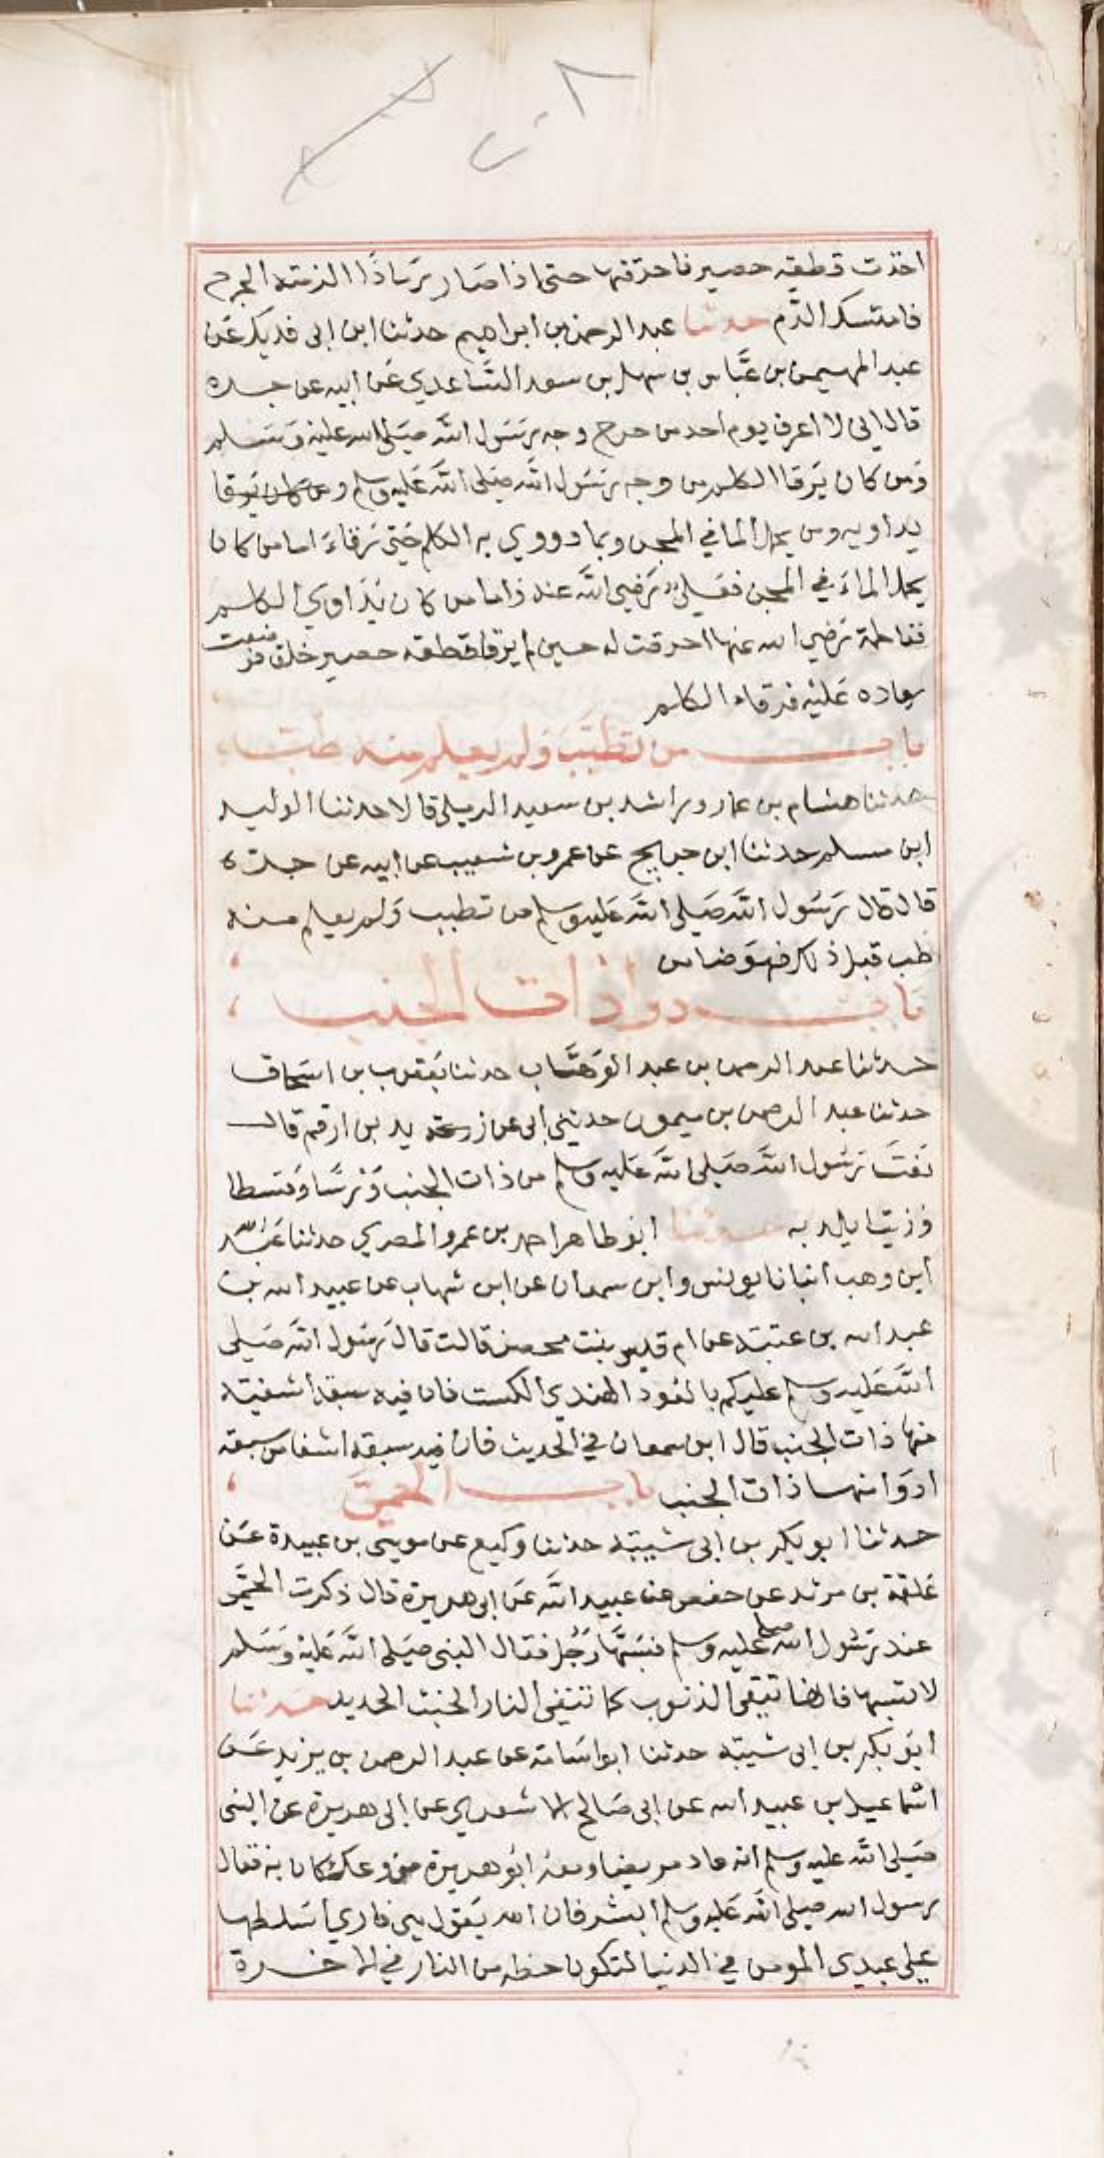 اخذت قطعة حصير فاحرقتها حتى اذا صار رمادًا الزمته الجرح
فامتسك الدّم حدثنا عبد الرحمن بن ابراهيم حدثنا ابن ابى فديك عَن
عبد المهيمن بن عبَّاس بن سهل بن سعد السَّاعدي عَن ابيه عن جده
قال انى لا اعرف يوم احد من جرح وجه رَسَول اللّه صَلى الله عليه وَسَلم
وَمن كان يَرقا الكلم من وجه رَسُول الله صَلى اللَّه عَليه وسلم
يداويه ومن يحمل الما في المجن وبما دووي به الكلم حَتى رَقاءَ اما من كان
يحمل الماءَ في المجن فعَلي رَضي اللّه عنه واما من كان يُدَاوي الكلم
ففاطمة رَضي الله عنها احرقت له حين لم يرقا قطعة حصير خلق فوضعت
رماده عَليْه فرقاء الكلم
باب من تطبَّبَ وَلم يعلم منه طبّ
حدثنا هشام بن عمار وراشد بن سعيد الرملي قالا حدثنا الوليد
ابن مسلم حدثنا ابن جريج عن عمرو بن شعيب عن ابيه عن جده
قال قال رَسَول اللَّه صَلى اللَّه عَليه وسلم من تطبب وَلم يعلم منه
طب قبل ذلك فهوَ ضامن
بَاب دوا ذات الجنب
حدثنا عبد الرحمن بن عبد الوَهَّاب حدثنا يَعقوب بن اسَحاق
حدثنا عبد الرحمن بن ميمون حدثني ابى عن زيد بن ارقم قال
نَعَتَ رَسُول اللَّه صَلى اللَّه عَليه وسلم من ذات الجنب وَرْسًا وَقسطا
وَزيتا يلد به حدثنا ابُو طاهر احمد بن عمرو المصري حدثنا عَبد اللّه
ابن وهب انبانا يونس وابن سمعان عن ابن شهاب عن عبيد الله بن
عبد الله بن عتبة عن ام قيس بنت محصن قالت قالَ رَسُول اللَّه صَلى
اللَّه عَليه وسلم عليكم بالعُود الهندي الكست فان فيه سبعة اشفية
منها ذات الجنب قال ابن سمعان في الحديث فان فيه سبعة اشفا من سبعة
ادوَا منها ذات الجنب باب الحمىَّ
حدثنا ابو بكر بن ابى شيبة حدثنا وكيع عن موسى بن عبيدة عَن
عَلقة بن مرثد عن حفص عن عبيد اللَّه عَن ابى هريرة قال ذكرت الحمَّى
عند رَسُول الله صلى عليه وسلم فسَبَّهَا رَجُل فقال النبى صَلى اللَّه عَليْه وَسَلم
لا تسبها فانها تنقى الذنوب كما تنفى النار الخبث الحديد حدثنا
ابَو بكر بن ابى شيبة حدثنا ابو اسَامة عن عبد الرحمن بن يزيد عَن
اسْماعيل بن عبيد الله عن ابى صَالح الاشعري عن ابى هريرة عن النبى
صَلى اللَّه عليه وسلم انه عاد مريضا ومعه ابُو هريرة من وعك كان به فقال
رسول الله صلى اللَّه عَليه وسلم ابشر فان الله يَقول هي ناري اسَلطها
على عبدى المومن في الدنيا لتكون حظه من النار في الاخرة